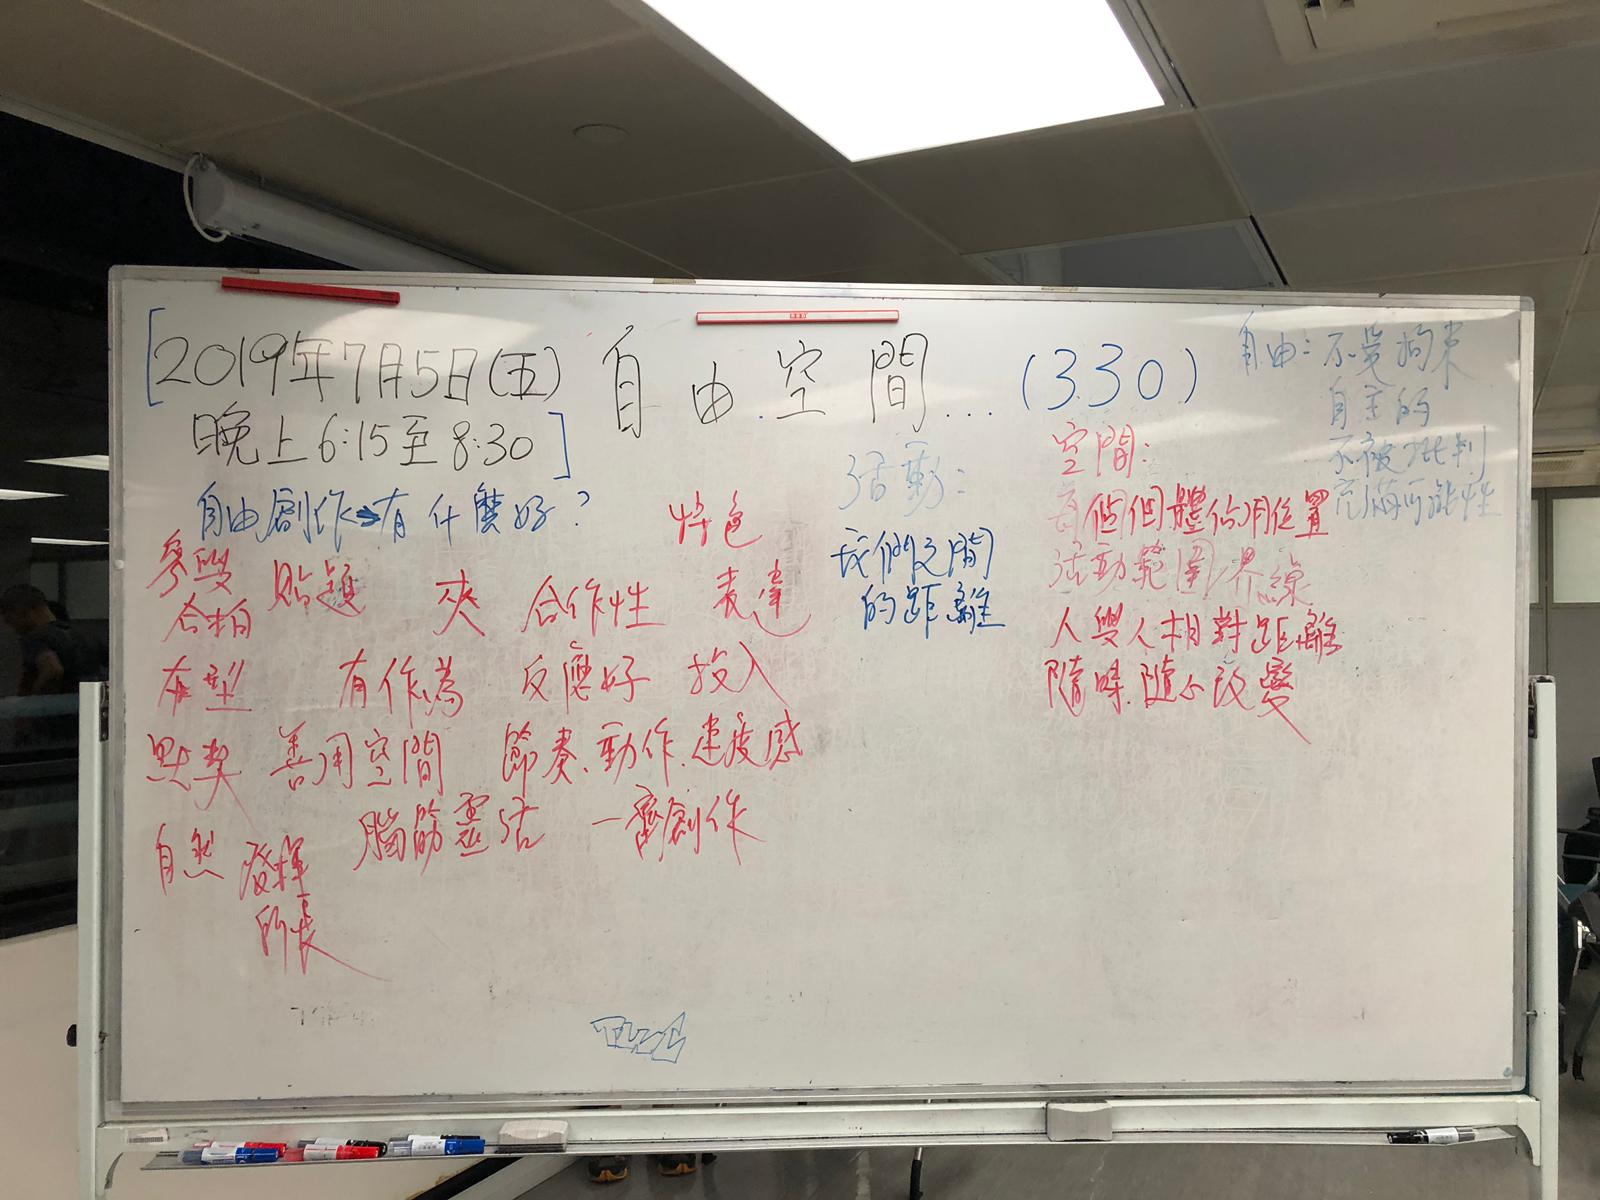 [2019年7月5日(五) 自由空間...(330)
晚上6:15至8:30]
自由創作→有什麼好?
特色
參與 貼題 夾 合作性 表達
合拍
有型 有作為 反應好 投入
默契 善用空間 節奏、動作、速疲感
自然 發揮所長 腦筋靈活 一齊創作
活動:
我們之間
的距離
空間:
每個個體佔用位置
活動範圍界線
人與人相對距離
隨時隨心改變
自由:不受拘束
自主的
不被批判
充滿可能性